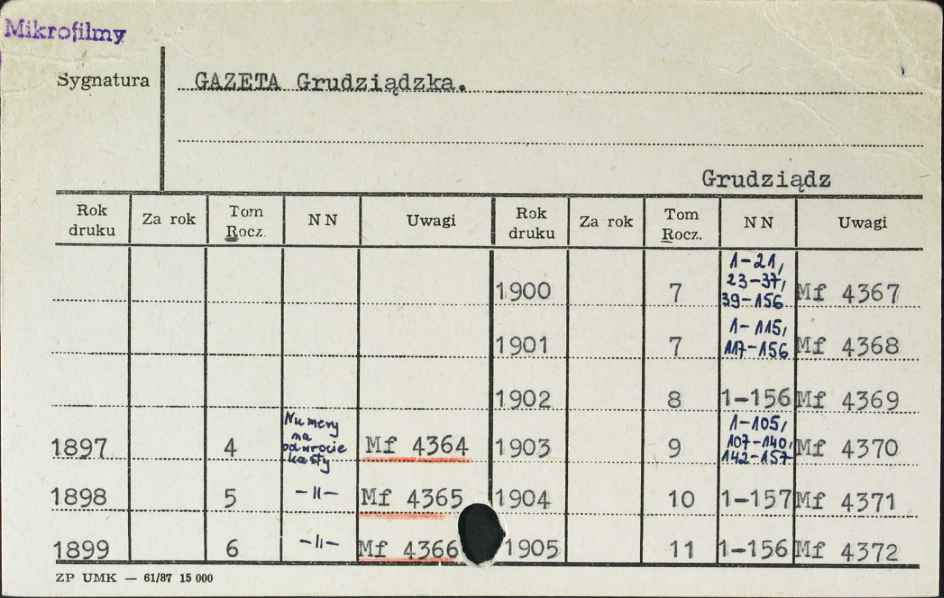 Mikrofilmy
Sygnatura GAZETA Grudziądzka.
Grudziądz
Rok druku Za rok Tom Rocz. NN Uwagi Rok druku Za rok Tom Rocz. NN Uwagi
1900 7 1-21, 23-37, 39-156 Mf 4367
1901 7 1-115, 117-156 Mf 4368
1902 8 1-156 Mf 4369
1897 4 Numery na odwrocie karty Mf 4364 1903 9 1-105, 107-140, 142-157 Mf 4370
1898 5 -II- Mf 4365 1904 10 1-157 Mf 4371
1899 6 -II- Mf 4366 1905 11 1-156 Mf 4372
ZP UMK — 61/87 15 000